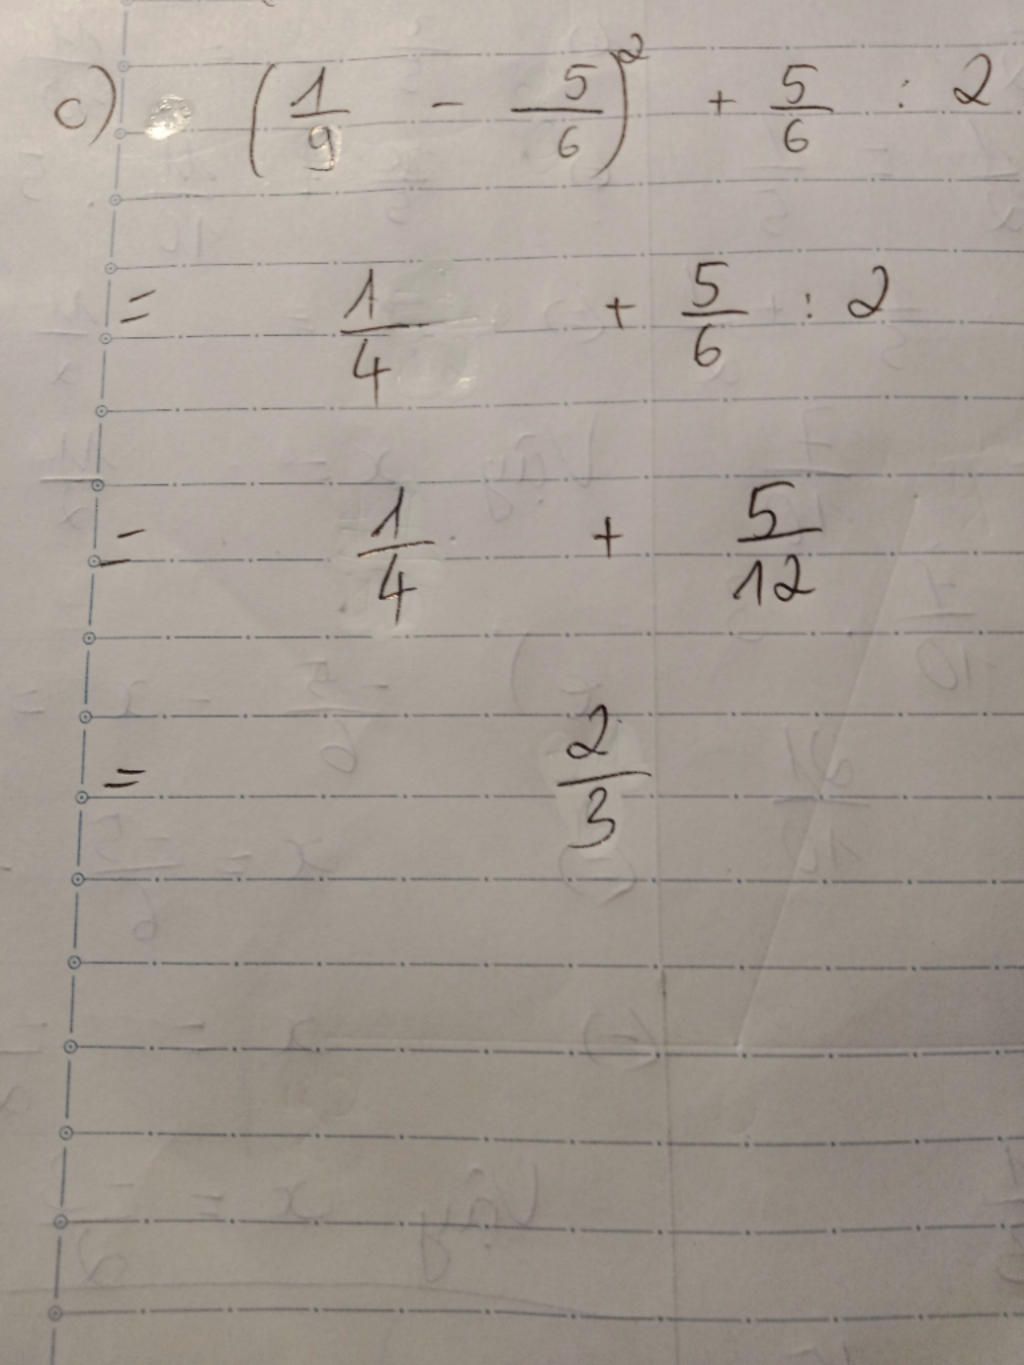 c) (1/9 - 5/6)² + 5/6 : 2
= 1/4 + 5/6 : 2
= 1/4 + 5/12
= 2/3